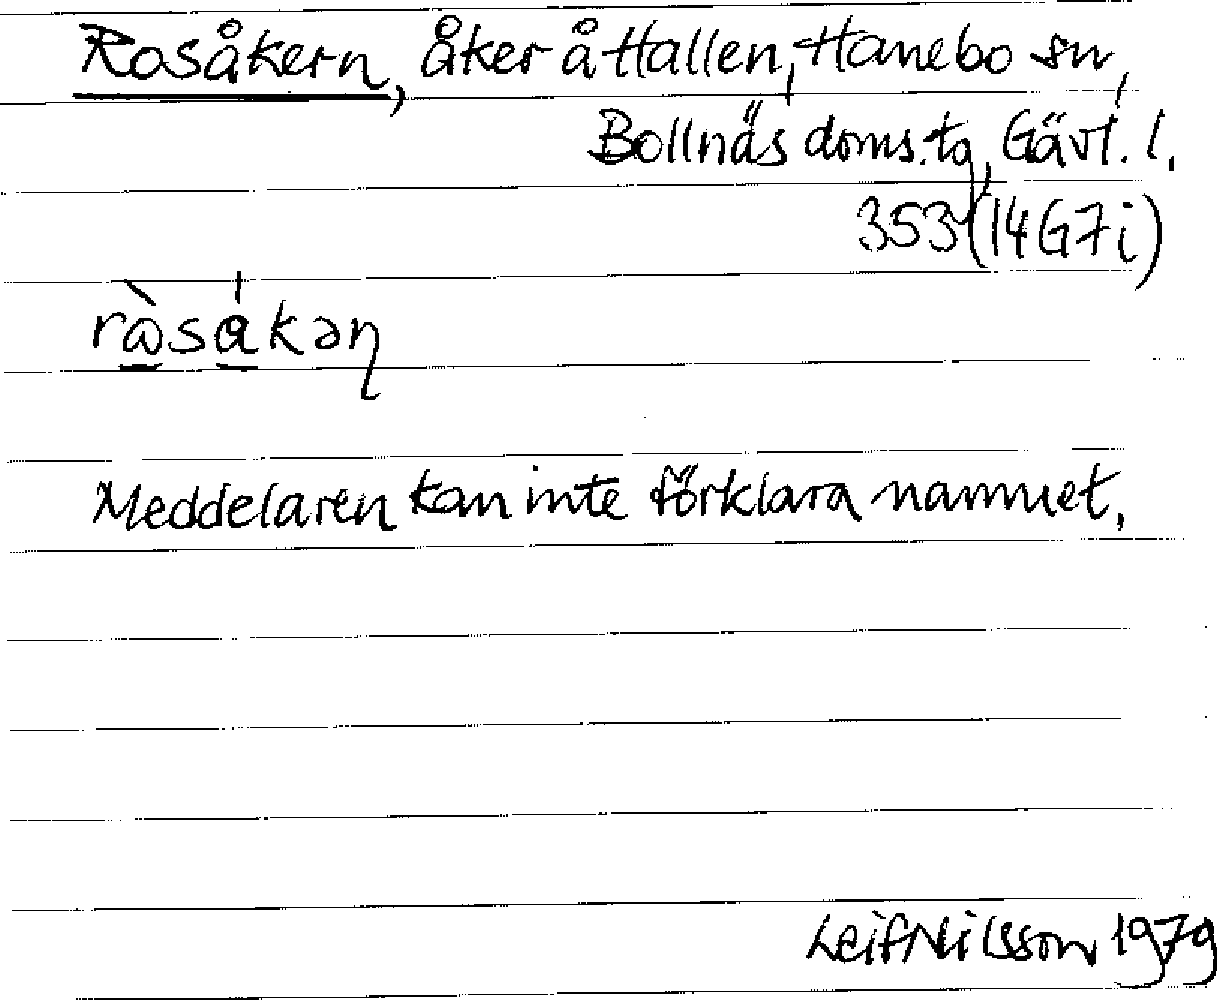 Rosåkern, åker å Hallen, Hanebo sn,
Bollnäs doms.tg, Gävl. l.
353 (14G7i)
rὼsåkəɳ
Meddelaren kan inte förklara namnet.
Leif Nilsson 1979